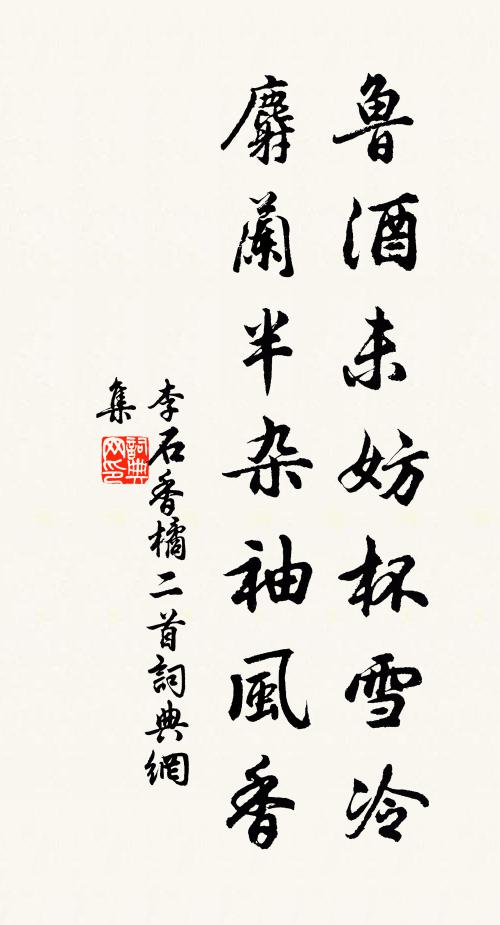 魯酒未妨杯雪冷
麝蘭半杂袖風香
李石香橘二首詞典網
集
詞典
网印